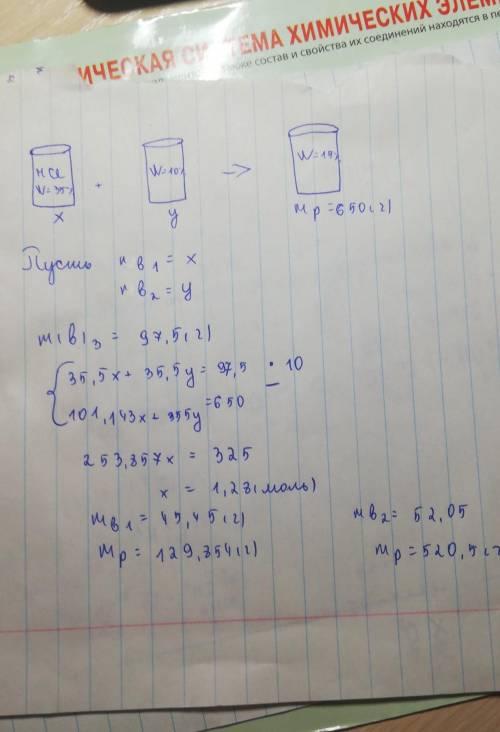 ИЧЕСКАЯ СИСТЕМА ХИМИЧЕСКИХ ЭЛЕМ
также состав и свойства их соединений находятся в пе
HCl
W=35%
x
+
W=10%
y
→
W=15%
mp=650(г)
Пусть n в1 = x
n в2 = y
m(в)3 = 97,5(г)
35,5x + 35,5y = 97,5 · 10
101,143x + 355y = 650
253,857x = 325
x = 1,28(моль)
mв1 = 45,45(г)
mв2 = 52,05
mp = 129,854(г)
mp = 520,5(г